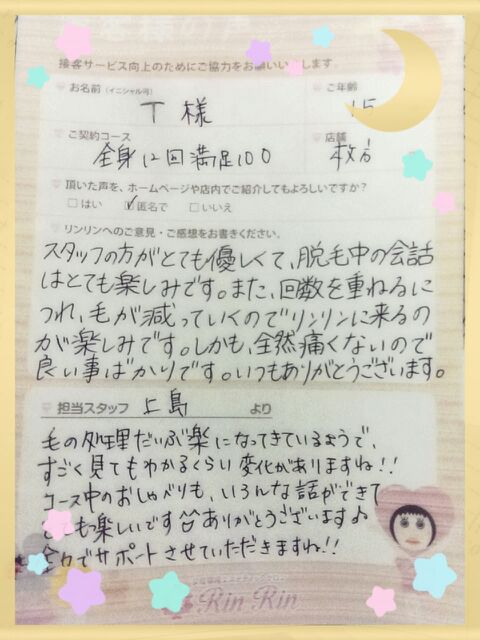 お客様の声
接客サービス向上のためにご協力をお願いいたします
お名前（イニシャル可）
T 様
ご年齢
15
ご契約コース
全身12回満足100
店舗
枚方
頂いた声を、ホームページや店内でご紹介してもよろしいですか？
□はい ☑匿名で □いいえ
リンリンへのご意見・ご感想をお書きください。
スタッフの方がとても優しくて、脱毛中の会話
はとても楽しみです。また、回数を重ねるに
つれ、毛が減っていくのでリンリンに来るの
が楽しみです。しかも、全然痛くないので
良い事ばかりです。いつもありがとうございます。
担当スタッフ 上島 より
毛の処理だいぶ楽になってきているようで、
すごく見てもわかるくらい変化がありますね!!
コース中のおしゃべりも、いろんな話ができて
とても楽しいです ありがとうございます♪
全力でサポートさせていただきますね!!
Rin Rin